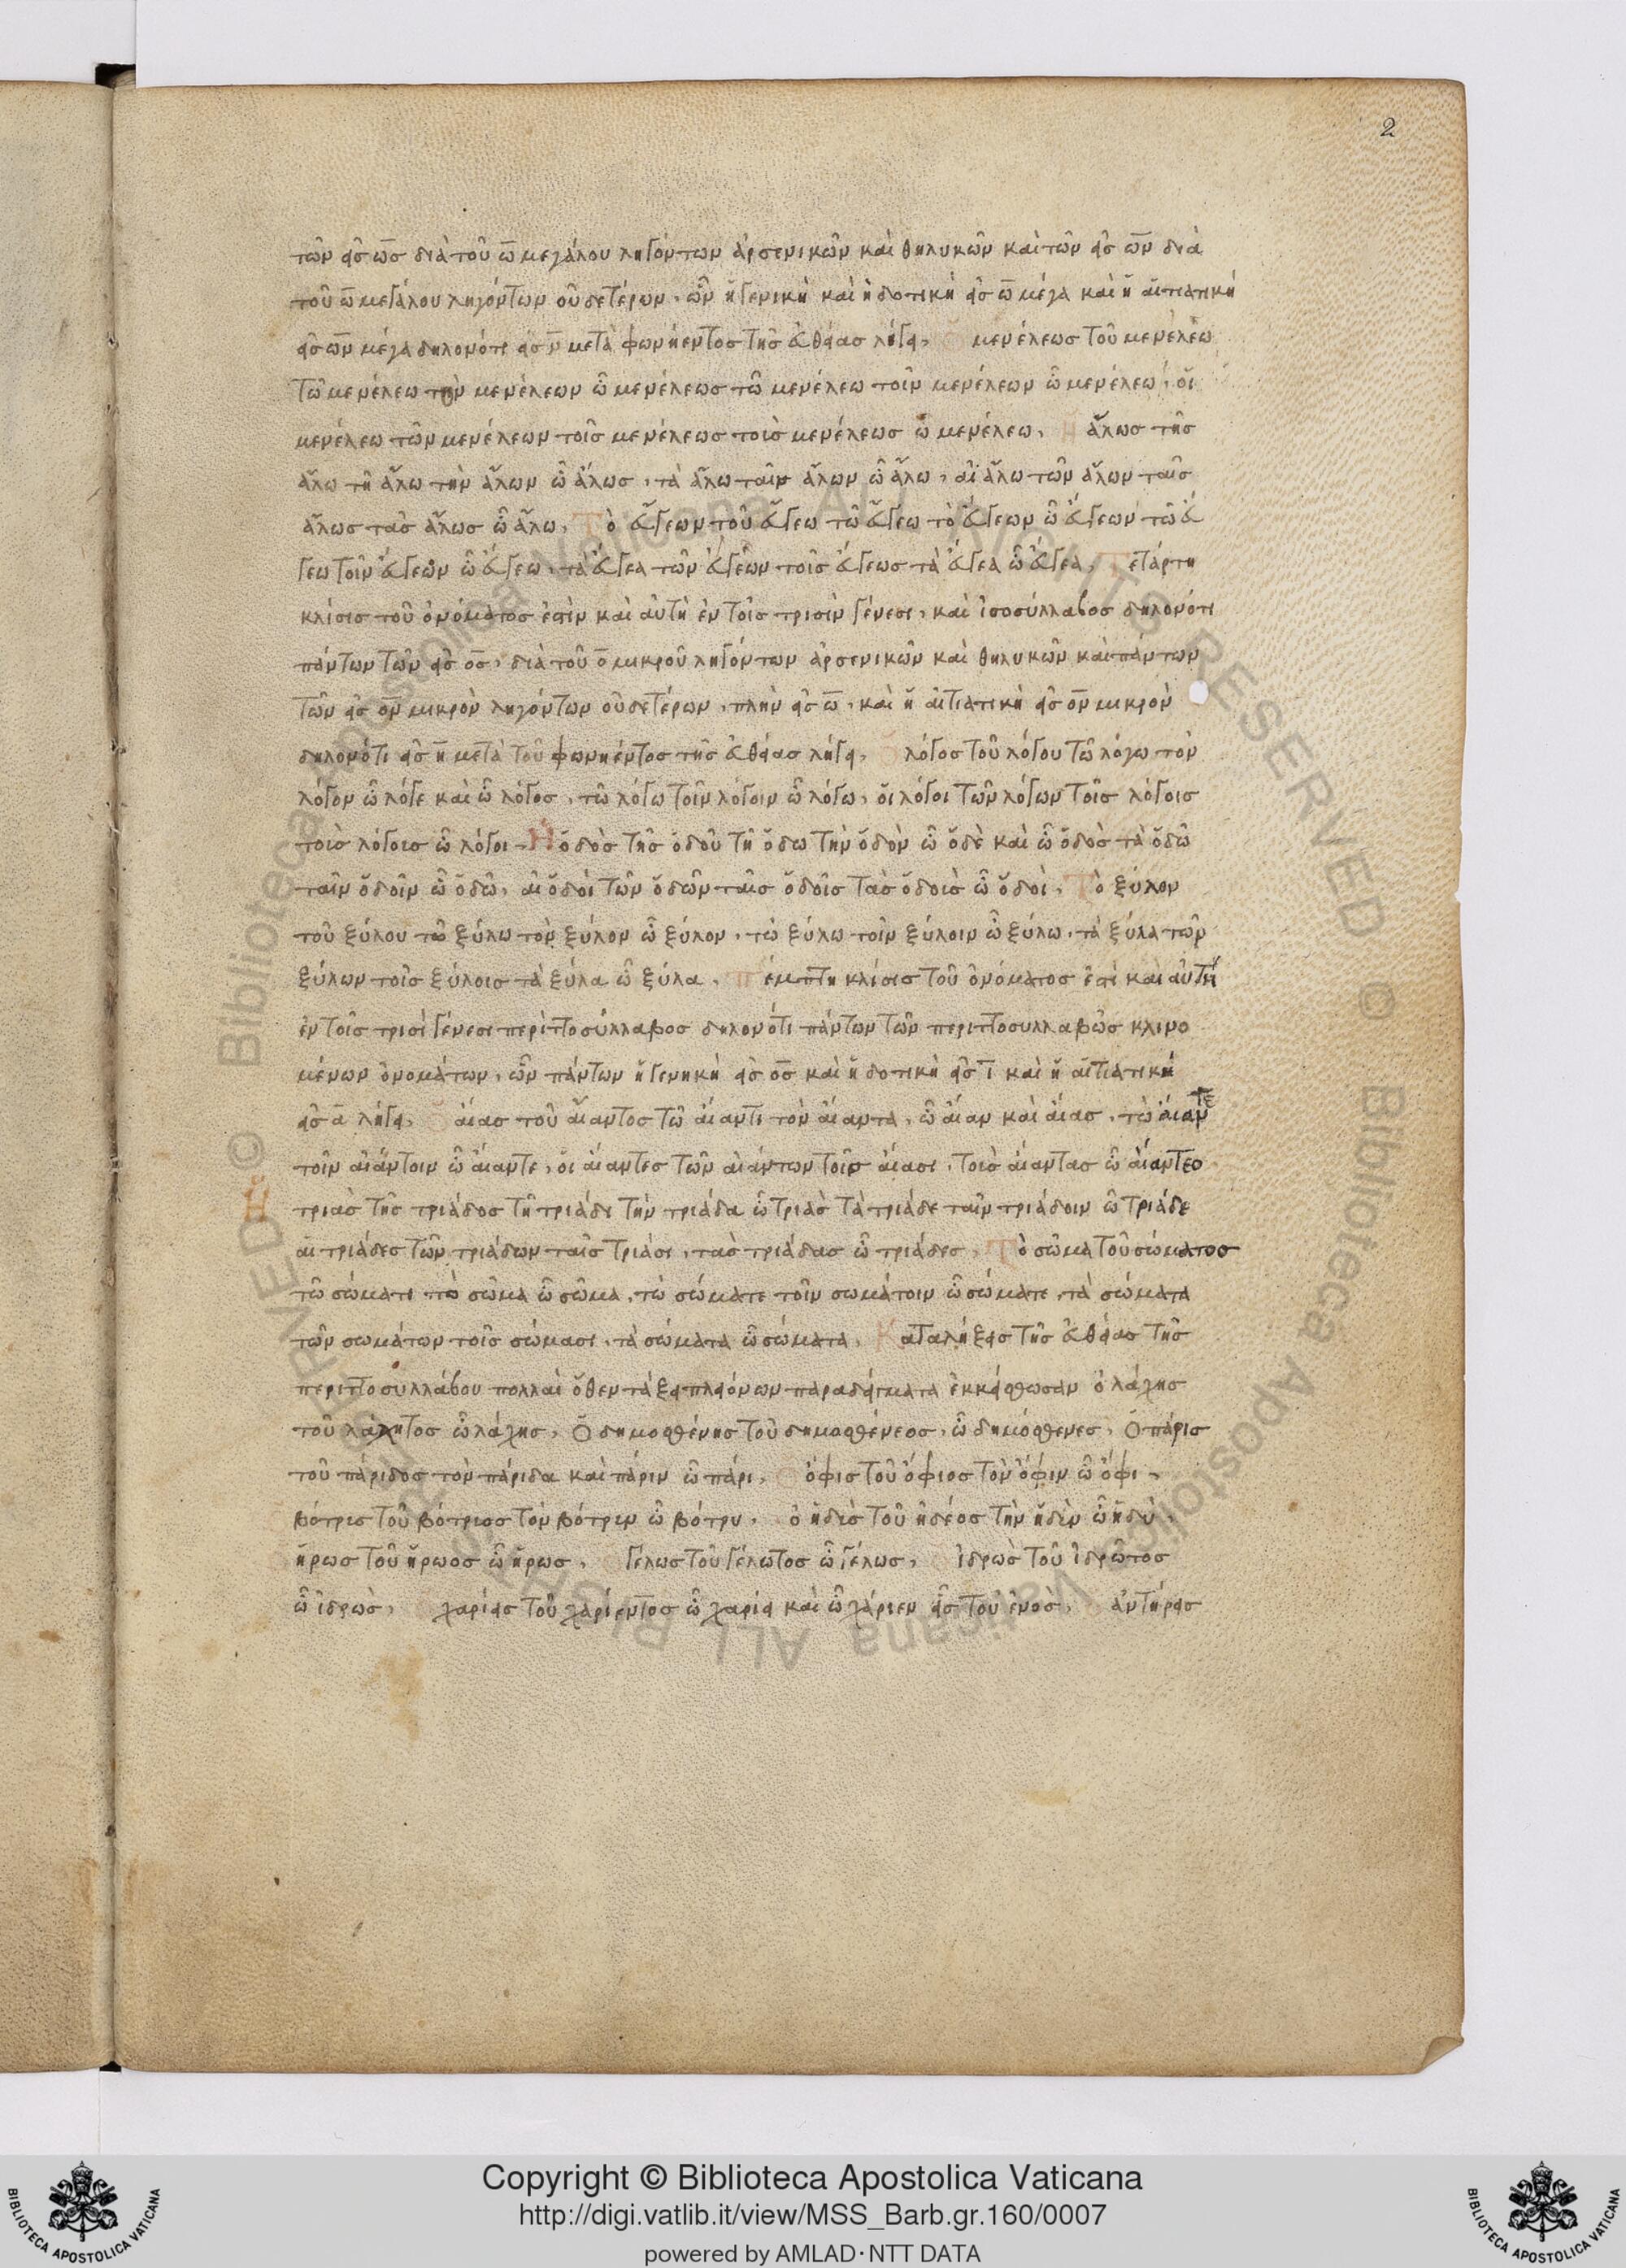 2
τῶν εἰς ω̅ς διὰ τοῦ ω̅ μεγάλου ληγόντων ἀρσενικῶν καὶ θηλυκῶν καὶ τῶν εἰς ω̅ν διὰ
τοῦ ω̅ μεγάλου ληγόντων οὐδετέρων, ὧν ἡ γενικὴ καὶ ἡ δοτικὴ εἰς ω̅ μέγα καὶ ἡ αἰτιατικὴ
εἰς ω̅ν μέγα δηλονότι εἰς ν̅ μετὰ φωνήεντος τῆς εὐθείας λήγει, Ὁ μενέλεως τοῦ μενέλεω
τῶ μενέλεω τὸν μενέλεων ὦ μενέλεως τὼ μενέλεω τοῖν μενέλεων ὦ μενέλεω, οἱ
μενέλεω τῶν μενέλεων τοῖς μενέλεως τοὺς μενέλεως ὦ μενέλεω, Ἡ ἅλως τῆς
ἅλω τῆ ἅλω τὴν ἅλων ὦ ἅλως, τὰ ἅλω ταῖν ἅλων ὦ ἅλω, αἱ ἅλω τῶν ἅλων ταῖς
ἅλως τὰς ἅλως ὦ ἅλω, Τὸ εὔγεων τοῦ εὔγεω τῶ εὔγεω τὸ εὔγεων ὦ εὔγεων τὼ εὔ
γεω τοῖν εὔγεων ὦ εὔγεω, τὰ εὔγεα τῶν εὐγέων τοῖς εὔγεως τὰ εὔγεα ὦ εὔγεα, Τετάρτη
κλίσις τοῦ ὀνόματος ἐστὶν καὶ αὐτὴ ἐν τοῖς τρισὶν γένεσι, καὶ ἰσοσύλλαβος δηλονότι
πάντων τῶν εἰς ο̅ς, διὰ τοῦ ο̅ μικροῦ ληγόντων ἀρσενικῶν καὶ θηλυκῶν καὶ πάντων
τῶν εἰς ο̅ν μικρὸν ληγόντων οὐδετέρων, πλὴν εἰς ω̅, καὶ ἡ αἰτιατικὴ εἰς ο̅ν μικρὸν
δηλονότι εἰς ν̅ μετὰ τοῦ φωνήεντος τῆς εὐθείας λήγει, Ὁ λόγος τοῦ λόγου τῶ λόγω τὸν
λόγον ὦ λόγε καὶ ὦ λόγος, τὼ λόγω τοῖν λόγοιν ὦ λόγω, οἱ λόγοι τῶν λόγων τοῖς λόγοις
τοὺς λόγοις ὦ λόγοι. Ἡ ὁδὸς τῆς ὁδοῦ τῆ ὁδω τὴν ὁδὸν ὦ ὁδὲ καὶ ὦ ὁδὸς τὰ ὁδῶ
ταῖν ὁδοῖν ὦ ὁδῶ, αἱ ὁδοὶ τῶν ὁδῶν ταῖς ὁδοῖς τὰς ὁδοὺς ὦ ὁδοὶ, Τὸ ξύλον
τοῦ ξύλου τῶ ξύλω τὸν ξύλον ὦ ξύλον, τὼ ξύλω τοῖν ξύλοιν ὦ ξύλω, τὰ ξύλα τῶν
ξύλων τοῖς ξύλοις τὰ ξύλα ὦ ξύλα, πέμπτη κλίσις τοῦ ὀνόματος ἐστὶ καὶ αὐτὴ
ἐν τοῖς τρισὶ γένεσι περιττοσύλλαβος δηλονότι πάντων τῶν περιττοσυλλαβῶς κλινο
μένων ὀνομάτων, ὧν πάντων ἡ γενηκὴ εἰς ο̅ς καὶ ἡ δοτικὴ εἰς ι̅ καὶ ἡ αἰτιατικὴ
εἰς α̅ λήγει, Ὁ αἴας τοῦ αἴαντος τῶ αἴαντι τὸν αἴαντα, ὦ αἶαν καὶ αἴας, τὼ αἴαντε
τοῖν αἰάντοιν ὦ αἴαντε, οἱ αἴαντες τῶν αἰάντων τοῖς αἴασι, τοὺς αἴαντας ὦ αἴαντες
Ἡ τριὰς τῆς τριάδος τῆ τριάδι τὴν τριάδα ὦ τριὰς τὰ τριάδε ταῖν τριάδοιν ὦ τριάδε
αἱ τριάδες τῶν τριάδων ταῖς τριάσι, τὰς τριάδας ὦ τριάδες, Τὸ σῶμα τοῦ σώματος
τῶ σώματι τὸ σῶμα ὦ σῶμα, τὼ σώματε τοῖν σωμάτοιν ὦ σώματε, τὰ σώματα
τῶν σωμάτων τοῖς σώμασι, τὰ σώματα ὦ σώματα, Καταλήξεις τῆς εὐθείας τῆς
περιττοσυλλάβου πολλαὶ ὅθεν τὰ ἐκ πλειόνων παραδείγματα ἐκκείσθωσαν ὁ λάχης
τοῦ λάχητος ὦ λάχης, Ὁ δημοσθένης τοῦ δημοσθένεος, ὦ δημόσθενες, Ὁ πάρις
τοῦ πάριδος τὸν πάριδα καὶ πάριν ὦ πάρι, Ὁ ὄφις τοῦ ὄφιος τὸν ὄφιν ὦ ὄφι,
βότρυς τοῦ βότρυος τὸν βότρυν ὦ βότρυ, ὁ ἡδὺς τοῦ ἡδέος τὴν ἡδὺν ὦ ἡδὺ,
ἥρως τοῦ ἥρωος ὦ ἥρως, γέλως τοῦ γέλωτος ὦ γέλως, ἱδρὼς τοῦ ἱδρῶτος
ὦ ἱδρὼς, χαρίεις τοῦ χαρίεντος ὦ χαρίει καὶ ὦ χάριεν εἷς τοῦ ἑνὸς, ἀντήρεις
Copyright © Biblioteca Apostolica Vaticana
http://digi.vatlib.it/view/MSS_Barb.gr.160/0007
powered by AMLAD·NTT DATA